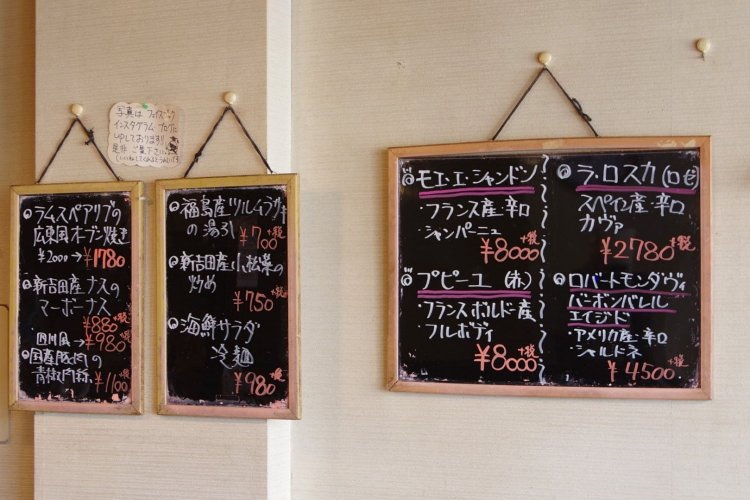 写真は フェイスブック
インスタグラム ブログに
UPしております!!
是非 ご覧下さい。
(いいねしてくれるとうれしいです)
ラムスペアリブの
広東風オーブン焼き
¥2000→¥1780 +税
新吉田産ナスの
マーボーナス
¥880 +税
四川風→¥980 +税
国産豚肉の
青椒肉絲 ¥1100 +税
福島産ツルムラサキ
の湯引 ¥700 +税
新吉田産小松菜の
炒め
¥750 +税
海鮮サラダ
冷麺
¥980 +税
モエ・エ・シャンドン
・フランス産・辛口
・シャンパーニュ
¥8000 +税
プピーユ(赤)
・フランスボルドー産
・フルボディ
¥8000 +税
ラ・ロスカ(ロゼ)
スペイン産・辛口
カヴァ
¥2780 +税
ロバートモンダヴィ
バーボンバレル
エイジド
・アメリカ産・辛口
・シャルドネ
¥4500 +税